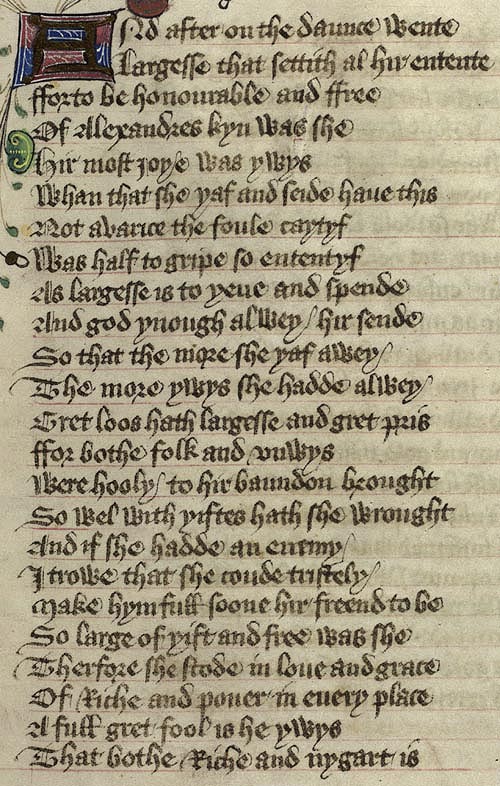 And after on the daunce wente
Largesse that settith al hir entente
fforto be honourable and ffree
Of Alexandres kyn was she
Hir most joye was ywys
Whan that she yaf and seide haue this
Not avarice the foule caytyf
Was half to gripe so ententyf
As largesse is to yeue and spende
And god ynough alwey / hir sende
So that the more she yaf awey /
The more ywys she hadde alwey /
Gret loos hath largesse and gret pris
ffor bothe folk and vnwys
Were hooly / to hir baundon brought
So wel with yiftes hath she wrought
And if she hadde an enemy /
I trowe that she coude tristely /
Make hym full soone hir freend to be
So large of yift and free was she
Therfore she stode in loue and grace
Of Riche and pouer in euery place
A full gret fool is he ywys
That bothe Riche and nygart is